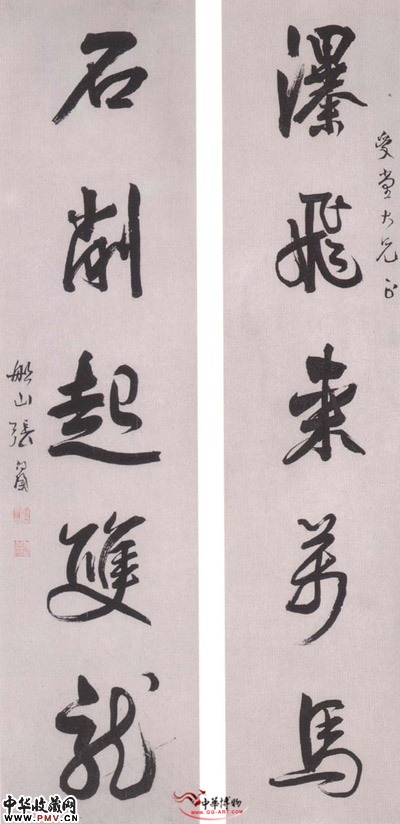 受堂大兄正
瀑飛來萬馬
石削起雙龍
船山張問陶
中华收藏网
www.PMV.CN
中華博物
www.GG-ART.com